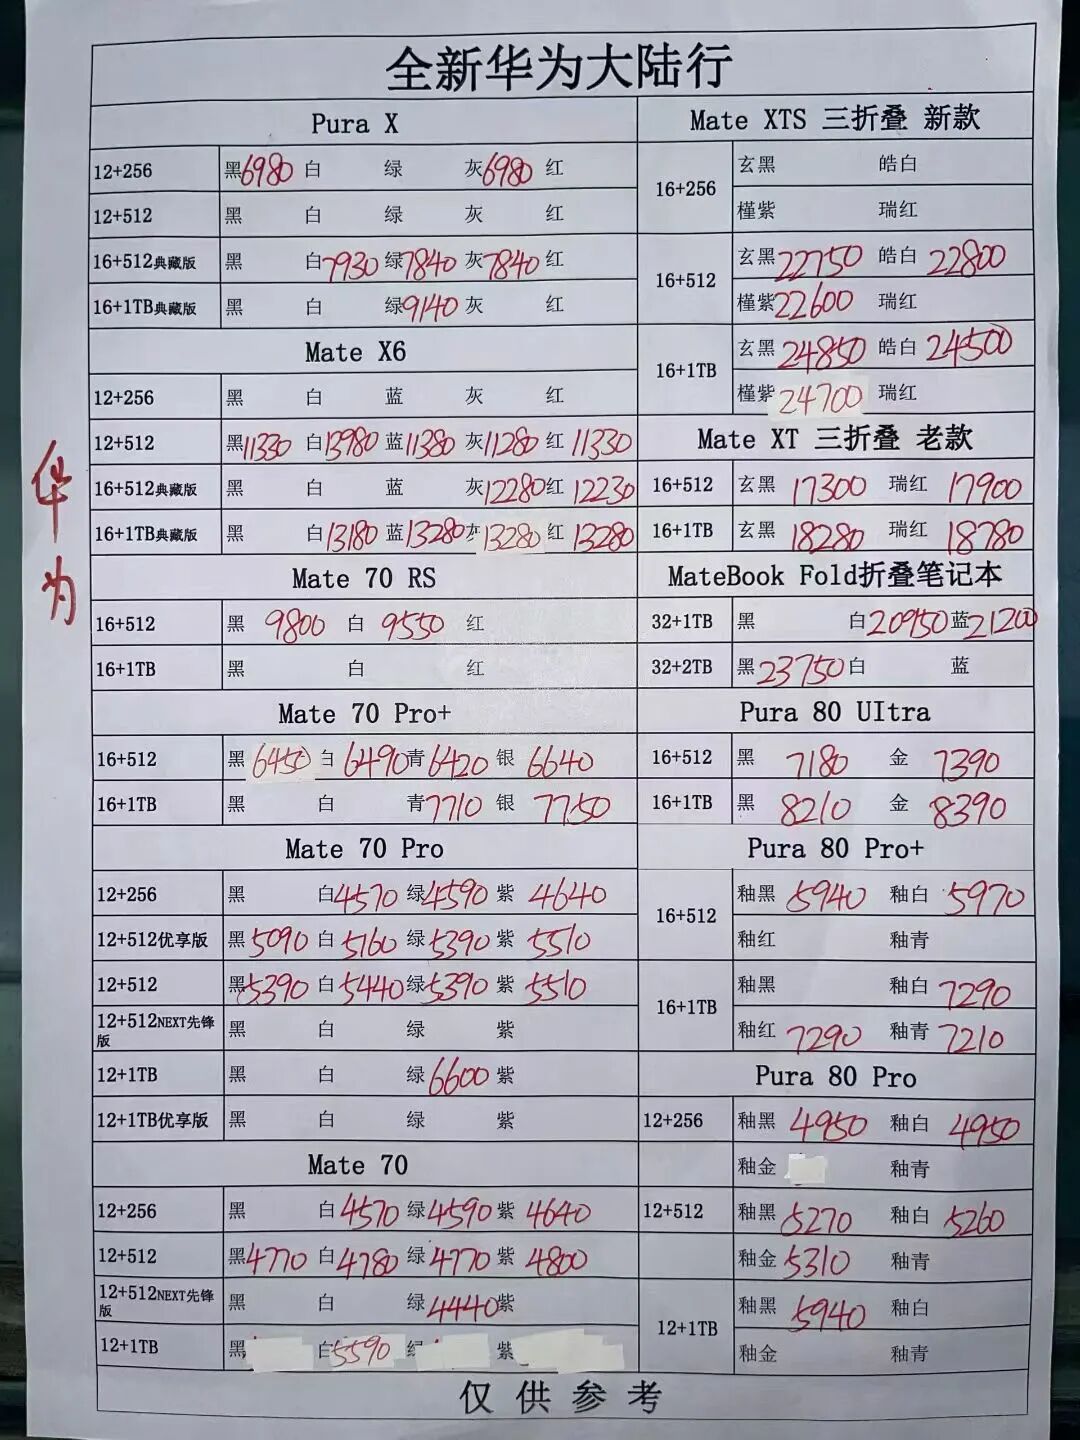 全新华为大陆行
华为
Pura X
12+256 黑6980 白 绿 灰6980 红
12+512 黑 白 绿 灰 红
16+512典藏版 黑 白7930 绿7840 灰7840 红
16+1TB典藏版 黑 白 绿9140 灰 红
Mate X6
12+256 黑 白 蓝 灰 红
12+512 黑11330 白13980 蓝11380 灰11280 红11330
16+512典藏版 黑 白 蓝 灰12280 红12230
16+1TB典藏版 黑 白13180 蓝13280 灰13280 红13280
Mate 70 RS
16+512 黑 9800 白 9550 红
16+1TB 黑 白 红
Mate 70 Pro+
16+512 黑 6450 白 6490 青6420 银 6640
16+1TB 黑 白 青7710 银 7750
Mate 70 Pro
12+256 黑 白4570 绿4590 紫 4640
12+512优享版 黑5090 白5160 绿5390 紫 5510
12+512 黑5390 白5440 绿5390 紫 5510
12+512NEXT先锋版 黑 白 绿 紫
12+1TB 黑 白 绿6600 紫
12+1TB优享版 黑 白 绿 紫
Mate 70
12+256 黑 白4570 绿4590 紫 4640
12+512 黑4770 白4780 绿4770 紫 4800
12+512NEXT先锋版 黑 白 绿4440 紫
12+1TB 黑 白5590 绿 紫
Mate XTS 三折叠 新款
16+256 玄黑 皓白
槿紫 瑞红
16+512 玄黑22750 皓白 22800
槿紫22600 瑞红
16+1TB 玄黑24850 皓白 24500
槿紫24700 瑞红
Mate XT 三折叠 老款
16+512 玄黑 17300 瑞红 17900
16+1TB 玄黑 18280 瑞红 18780
MateBook Fold折叠笔记本
32+1TB 黑 白20950 蓝21200
32+2TB 黑23750 白 蓝
Pura 80 UItra
16+512 黑 7180 金 7390
16+1TB 黑 8210 金 8390
Pura 80 Pro+
16+512 釉黑 5940 釉白 5970
釉红 釉青
16+1TB 釉黑 釉白 7290
釉红 7290 釉青 7210
Pura 80 Pro
12+256 釉黑 4950 釉白 4950
釉金 釉青
12+512 釉黑 5270 釉白 5260
釉金 5310 釉青
12+1TB 釉黑 5940 釉白
釉金 釉青
仅供参考